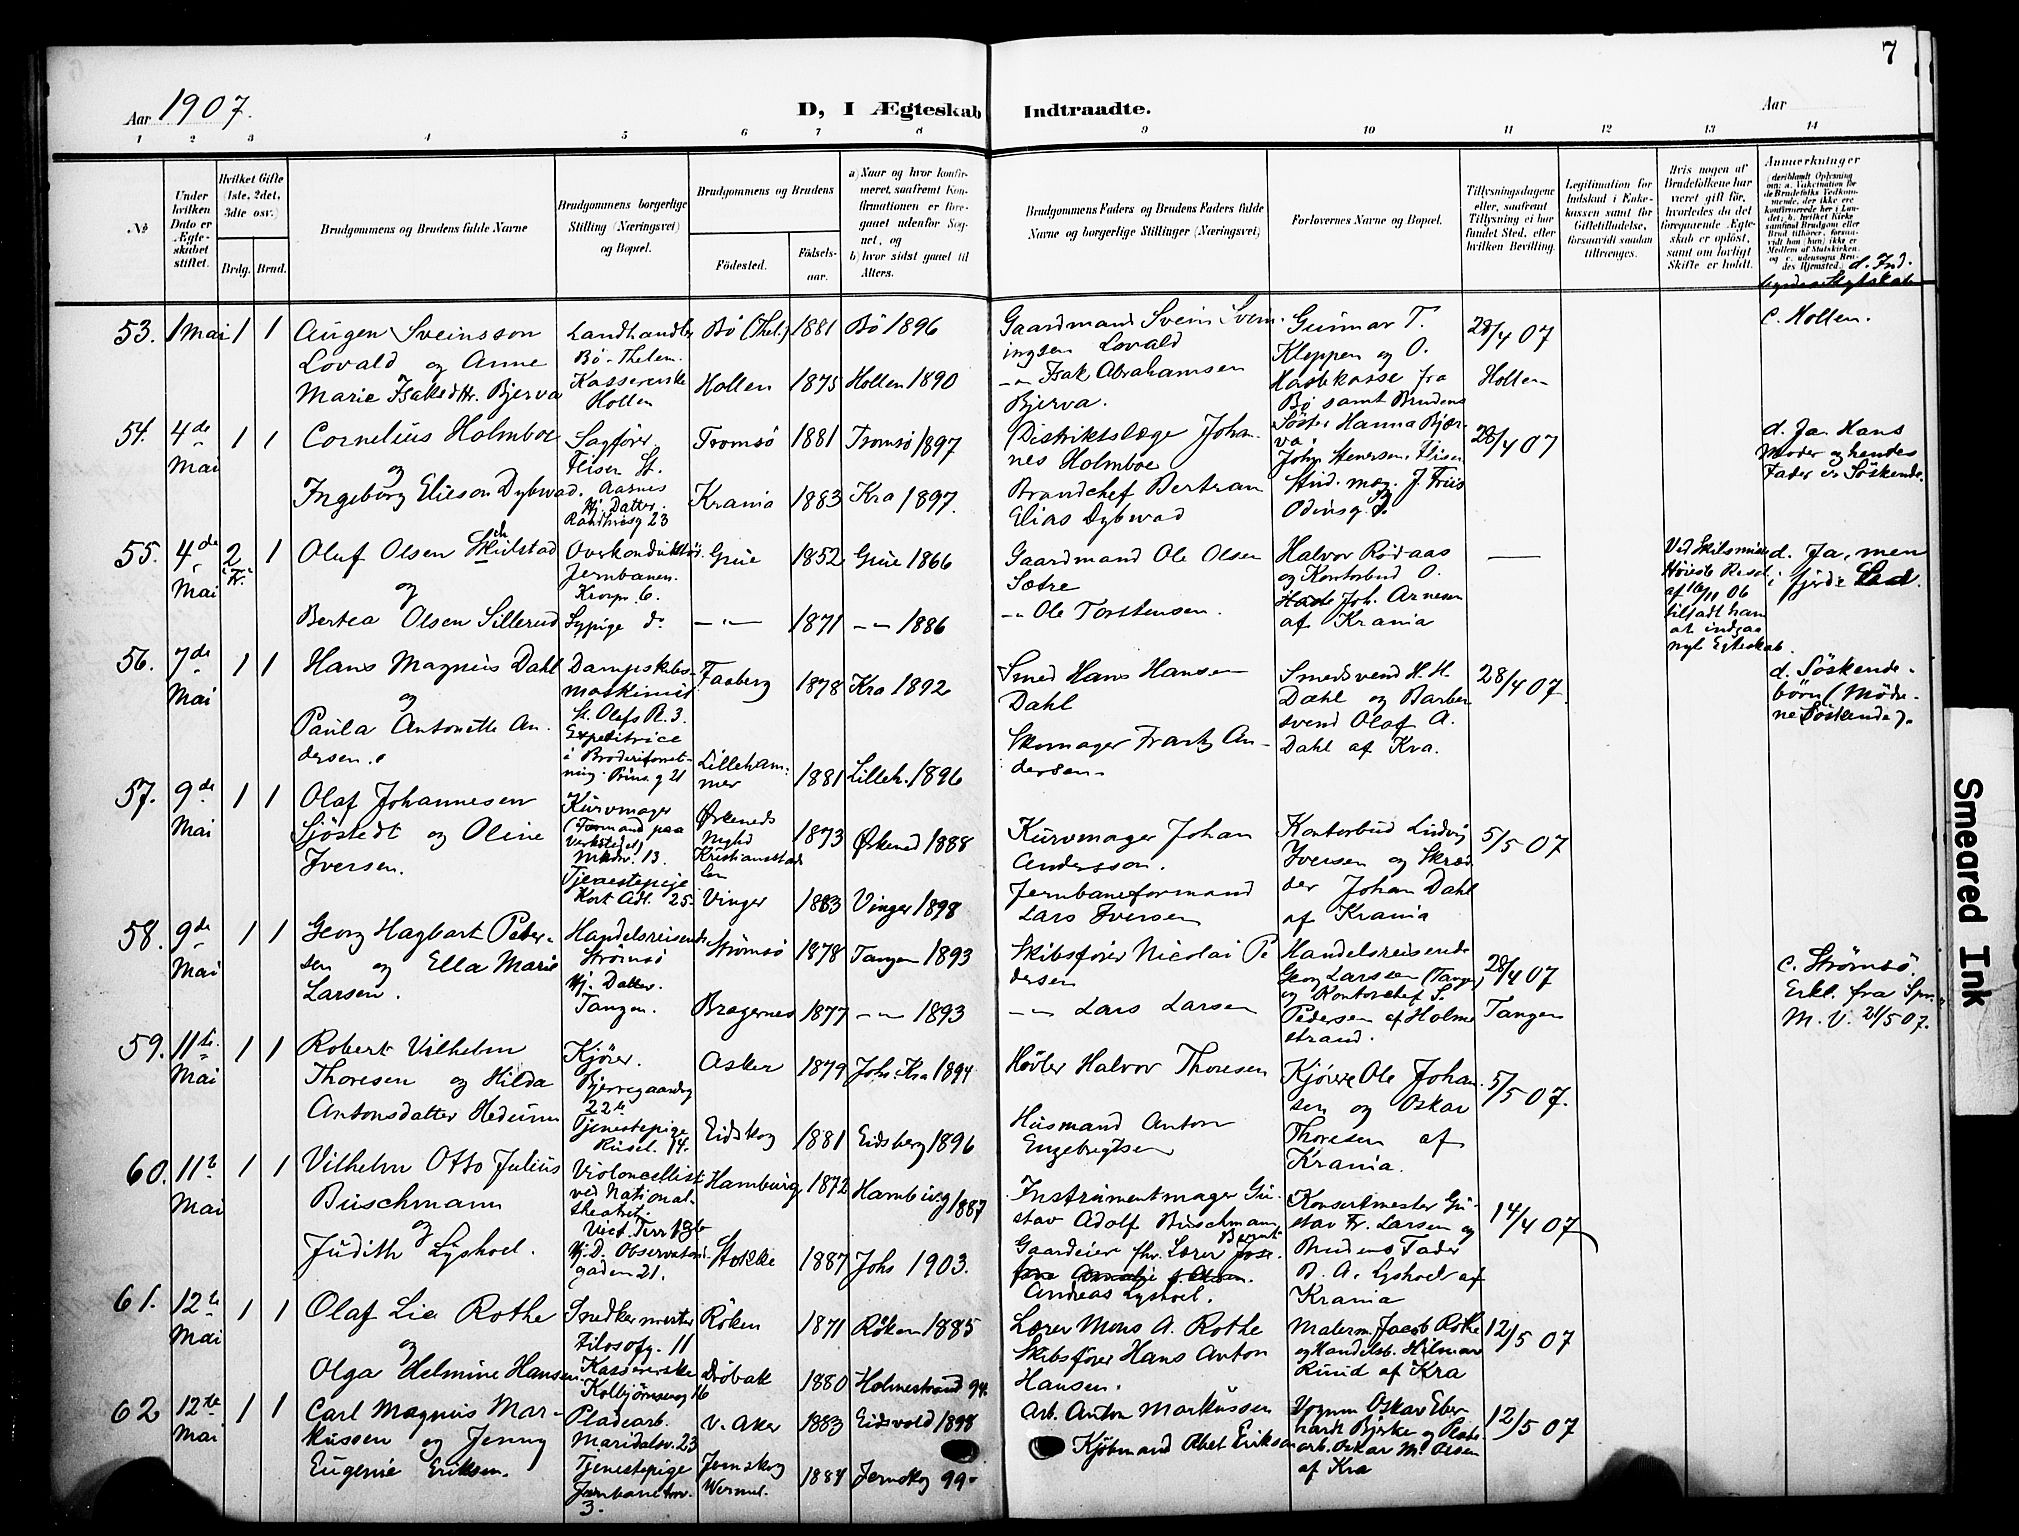 7
Aar 1907.
D, I Ægteskab Indtraadte.
Aar
1 2 3 4 5 6 7 8 9 10 11 12 13 14
No
Under hvilken Dato er Ægteskabet stiftet.
Hvilket Gifte (1ste, 2det, 3die osv.)
Brdg. Brud.
Brudgommens og Brudens fulde Navne
Brudgommens borgerlige Stilling (Næringsvei) og Bopæl.
Brudgommens og Brudens
Fødested.
Fødselsaar.
a) Naar og hvor konfirmeret, saafremt Konfirmationen er foregaaet udenfor Sognet, og
b) hvor sidst gaaet til Alters.
Brudgommens Faders og Brudens Faders fulde Navne og borgerlige Stillinger (Næringsvei)
Forlovernes Navne og Bopæl.
Tillysningsdagene eller, saafremt Tillysning ei har fundet Sted, efter hvilken Bevilling.
Legitimation for Indskud i Enkekassen samt for Giftetilladelse, forsaavidt saadan tiltrænges.
Hvis nogen af Brudefolkene har været gift før, hvorledes da det foregaaende Ægteskab er opløst, samt om lovligt Skifte er holdt.
Anmærkninger
53. 1 Mai 1 1
Augen Sveinsson
Lovald og Anne
Marie Isaksdtr. Bjerva
Landhandler
Bø. Thelem.
Kassererske
Hollen
Bø (Thel.) 1881 Bø 1896
Hollen 1875 Hollen 1890
Gaardmand Svein Sveningsen Lovald
-"- Isak Abrahamsen
Bjerva.
Gunnar T.
Kleppen og O.
fra
Bø samt Brudens
Søster Hanna Bjerva
28/4 07
Hollen
c. Hollen.
54. 4de Mai 1 1
Cornelius Holmboe
og
Ingeborg Elieson Dybwad.
Sagfører
Flisen St.
Aasnes
Hj. Datter.
Tromsø 1881 Tromsø 1897
Krania 1883 Kra 1897.
Distriktslæge Johannes Holmboe
Brandchef Bertran
Elias Dybwad
Johs. Stenersen, Flisen
Stud. med. J. Friis
28/4 07
d. Ja. Hans
Moder og hendes
Fader er Søskende.
55. 4de Mai 2 1
Oluf Olsen
og
Bertea Olsen Sillerud
Overkonduktør
Jernbanen.
6.
Sypige do
Grue 1852 Grue 1866
-"- 1871 -"- 1886
Gaardmand Ole Olsen
Sætre
-"- Ole Torstensen.
Halvor Rødaas
og Kontorbud O.
Joh. Arnesen
af Krania
Ved Skilsmisse
Høieste Resol.
af 16/11 06
tilladt ham
at indgaa
nyt Egteskab.
d. Ja, men
i fjerde Led.
56. 7de Mai 1 1
Hans Magnus Dahl
og
Paula Antonette Andersen.
Dampskibsmaskinist
St. Olafs Pl. 3.
Expeditrice
i Broderiforretning. Prins. g 21
Faaberg 1878 Kra 1892
Lillehammer 1881 Lilleh. 1896
Smed Hans Hansen
Dahl
Skomager Frantz Andersen.
Smedsvend H. H.
Dahl og Barber
svend Olaf A.
Dahl af Kra.
28/4 07.
d. Søskende-
børn (Mødrene Søskende).
57. 9de Mai 1 1
Olaf Johannesen
Sjøstedt og Oline
Iversen.
Kurvmager
(Formand paa
verkstedet)
13.
Tjenestepige
Kort Adl. 25.
Ørkeneds
Kristianstads
Len
1873 Ørkened 1888
Vinger 1883 Vinger 1898
Kurvmager Johan
Andersson.
Jernbaneformand
Lars Iversen
Kontorbud Ludvig
Iversen og Skrædder Johan Dahl
af Krania
5/5 07
58. 9de Mai 1 1
Georg Hagbart Petersen og Ella Marie
Larsen.
Handelsreisende
Strømsø
Hj. Datter.
Tangen.
Strømsø 1878 Tangen 1893
Bragernes 1877 -"- 1893
Skibsfører Nicolai Pedersen
-"- Lars Larsen
Handelsreisende
Georg Larssen (Tangen)
og Kontorchef S.
Pedersen af Holmestrand.
28/4 07
Tangen
c. Strømsø.
Erkl. fra Spr.
M. V. 21/5 07.
59. 11te Mai 1 1
Robert Vilhelm
Thoresen og Hilda
Antonsdatter Hedeunn
Kjører.
Bjerregaardsg
22
Tjenestepige
14.
Asker 1879 Johs. Kra 1894
Eidskog 1881 Eidsberg 1896
Høvler Halvor Thoresen
Husmand Anton
Engebregtsen
Kjører Ole Johansen og Oskar
Thoresen af
Krania.
5/5 07.
60. 11te Mai 1 1
Vilhelm Otto Julius
Buschmann
og
Judith Lyshoel.
Violoncellist
ved National-
theatret.
Vict. Terr 13b
Hj. D. Observatorigaden 21.
Hamburg 1872 Hamburg 1887
Stokke 1887 Johs 1903.
Instrumentmager Gustav Adolf Buschmann
Gaardeier fhv. Lærer
Andreas Lyshoel.
Konsertmester Gustav Fr. Larsen og
Brudens Fader
B. A. Lyshoel af
Krania
14/4 07
61. 12te Mai 1 1
Olaf Lie Rothe
og
Olga Helmine Hansen
Snedkermester
Filosofg. 11
Kassererske
Kolbjørnsensg 16
Røken 1871 Røken 1885
Drøbak 1880 Holmestrand 94.
Lærer Mons A. Rothe
Skibsfører Hans Anton
Hansen.
Malerm. Jacob Rothe
og Handelsb. Hilmar
Ruud af Kra
12/5 07
62 12te Mai 1 1
Carl Magnus Markussen og Jenny
Eugenie Eriksen.
Pladearb.
Maridalsv. 23
Tjenestepige
Jernbanetorv.
3.
V. Aker 1883 Eidsvold 1898
Jernskog
Wermel. 1884 Jernskog 99
Arb. Anton Markussen
Kjøbmand Abel Eriksen
Vognm Oskar Eberhardt Bjerke og Pladearb. Oskar M. Olsen
af Kra
12/5 07
Smeared Ink